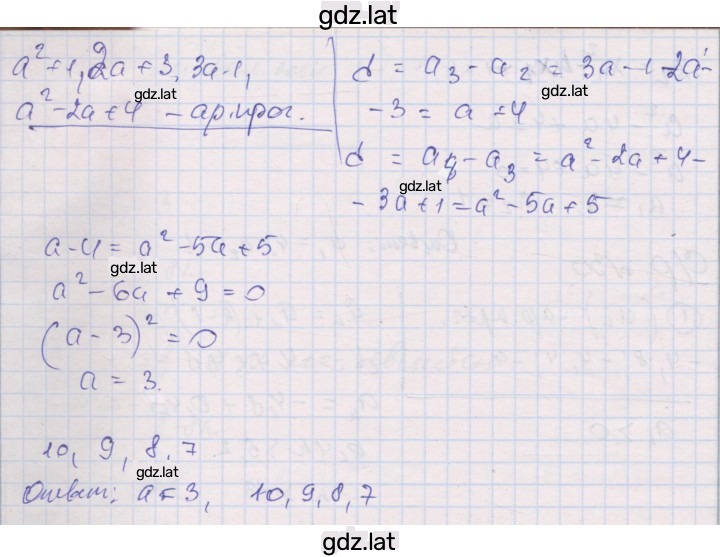 gdz.lat
a² + 1, 2a + 3, 3a - 1,
a² - 2a + 4 - ар. прог.
gdz.lat
d = a₃ - a₂ = 3a - 1 - 2a -
gdz.lat
- 3 = a - 4
d = a₄ - a₃ = a² - 2a + 4 -
gdz.lat
- 3a + 1 = a² - 5a + 5
a - 4 = a² - 5a + 5
gdz.lat
a² - 6a + 9 = 0
(a - 3)² = 0
a = 3.
10, 9, 8, 7
gdz.lat
Ответ: a = 3, 10, 9, 8, 7
gdz.lat